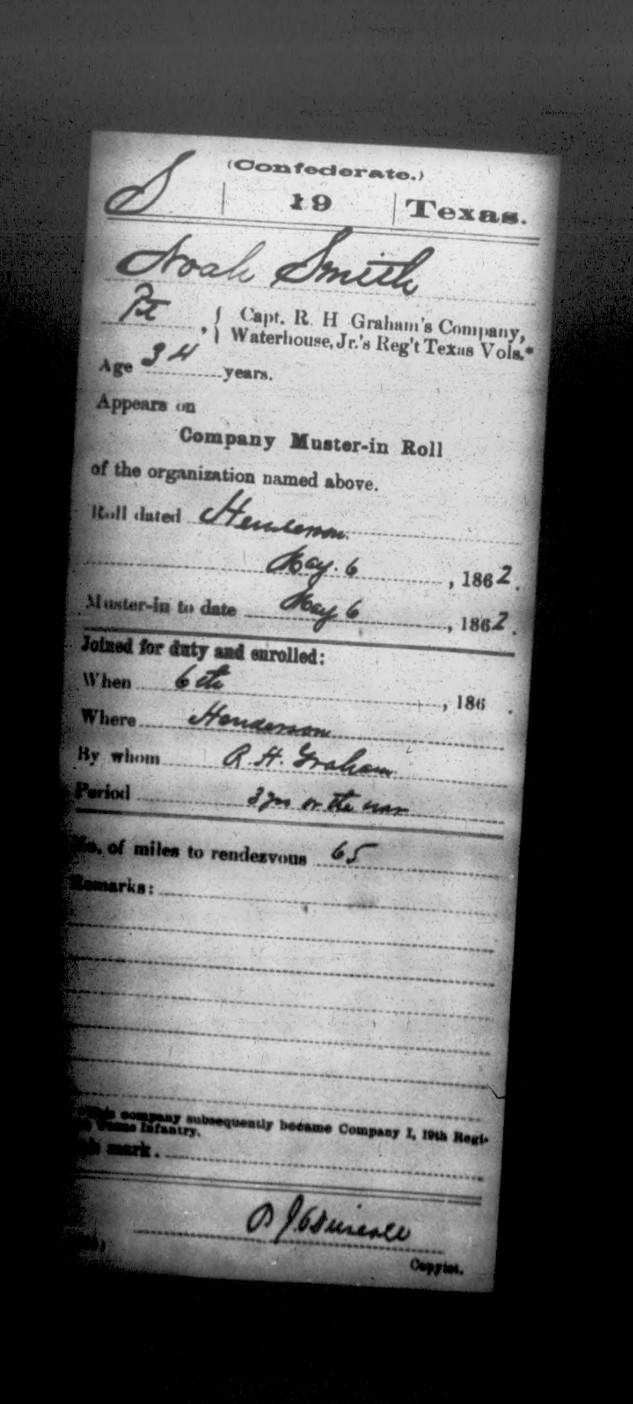 (Confederate.)
S | 19 | Texas.
Noah Smith
Pt , { Capt. R. H Graham's Company,
Waterhouse, Jr.'s Reg't Texas Vols.*
Age 34 years.
Appears on
Company Muster-in Roll
of the organization named above.
Roll dated Henderson.
May. 6 , 1862.
Muster-in to date May 6 , 1862.
Joined for duty and enrolled:
When 6th , 186 .
Where Henderson
By whom R. H. Graham.
Period 3 yrs or the war
No. of miles to rendezvous 65
Remarks:
This company subsequently became Company I, 19th Regi-
Texas Infantry.
mark.
Copyist.